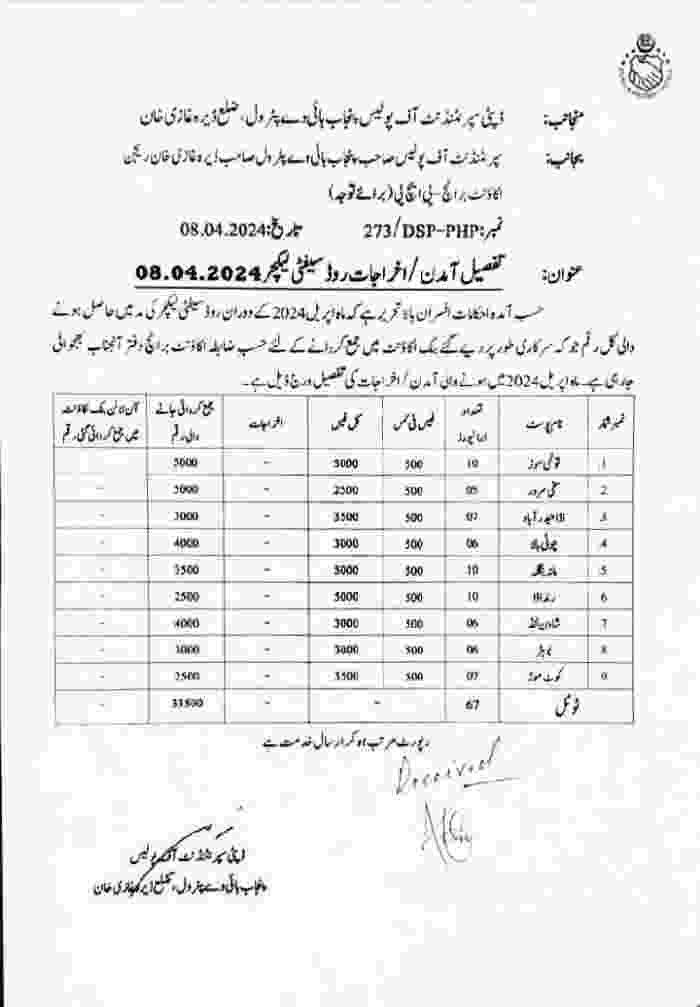 منجانب: ڈپٹی سپرنٹنڈنٹ آف پولیس پنجاب ہائی وے پٹرول، ضلع ڈیرہ غازی خان
بجانب: سپرنٹنڈنٹ آف پولیس صاحب پنجاب ہائی وے پٹرول صاحب ڈیرہ غازی خان ریجن
اکاؤنٹ برانچ-پی ایچ پی (برائے توجہ)
نمبر:273/DSP-PHP تاریخ:08.04.2024
عنوان: تفصیل آمدن/اخراجات روڈ سیفٹی لیکچر 08.04.2024
حسب آمدہ احکامات افسران بالا تحریر ہے کہ ماہ اپریل 2024 کے دوران روڈ سیفٹی لیکچر کی مد میں حاصل ہونے
والی کل رقم جو کہ سرکاری طور پر دیے گئے بنک اکاؤنٹ میں جمع کروانے کے لئے حسب ضابطہ اکاؤنٹ برانچ دفتر آنجناب بھجوائی
جا رہی ہے۔ ماہ اپریل 2024 میں ہونے والی آمدن/اخراجات کی تفصیل درج ذیل ہے۔
نمبر شمار نام پوسٹ تعداد ڈرائیورز فیس فی کس کل فیس اخراجات جمع کروائی جانے والی رقم آن لائن بنک اکاؤنٹ میں جمع کروائی گئی رقم
1 موڑ 10 500 5000 - 5000 -
2 سخی سرور 05 500 2500 - 5000 -
3 حیدر آباد 07 500 3500 - 3000 -
4 چوٹی بالا 06 500 3000 - 4000 -
5 10 500 5000 - 3500 -
6 10 500 5000 - 2500 -
7 شادن لنڈ 06 500 3000 - 4000 -
8 06 500 3000 - 3000 -
9 کوٹ موڑ 07 500 3500 - 3500 -
ٹوٹل 67 - - 33500 -
رپورٹ مرتب ہو کر ارسال خدمت ہے
Received
ڈپٹی سپرنٹنڈنٹ آف پولیس
پنجاب ہائی وے پٹرول، ضلع ڈیرہ غازی خان